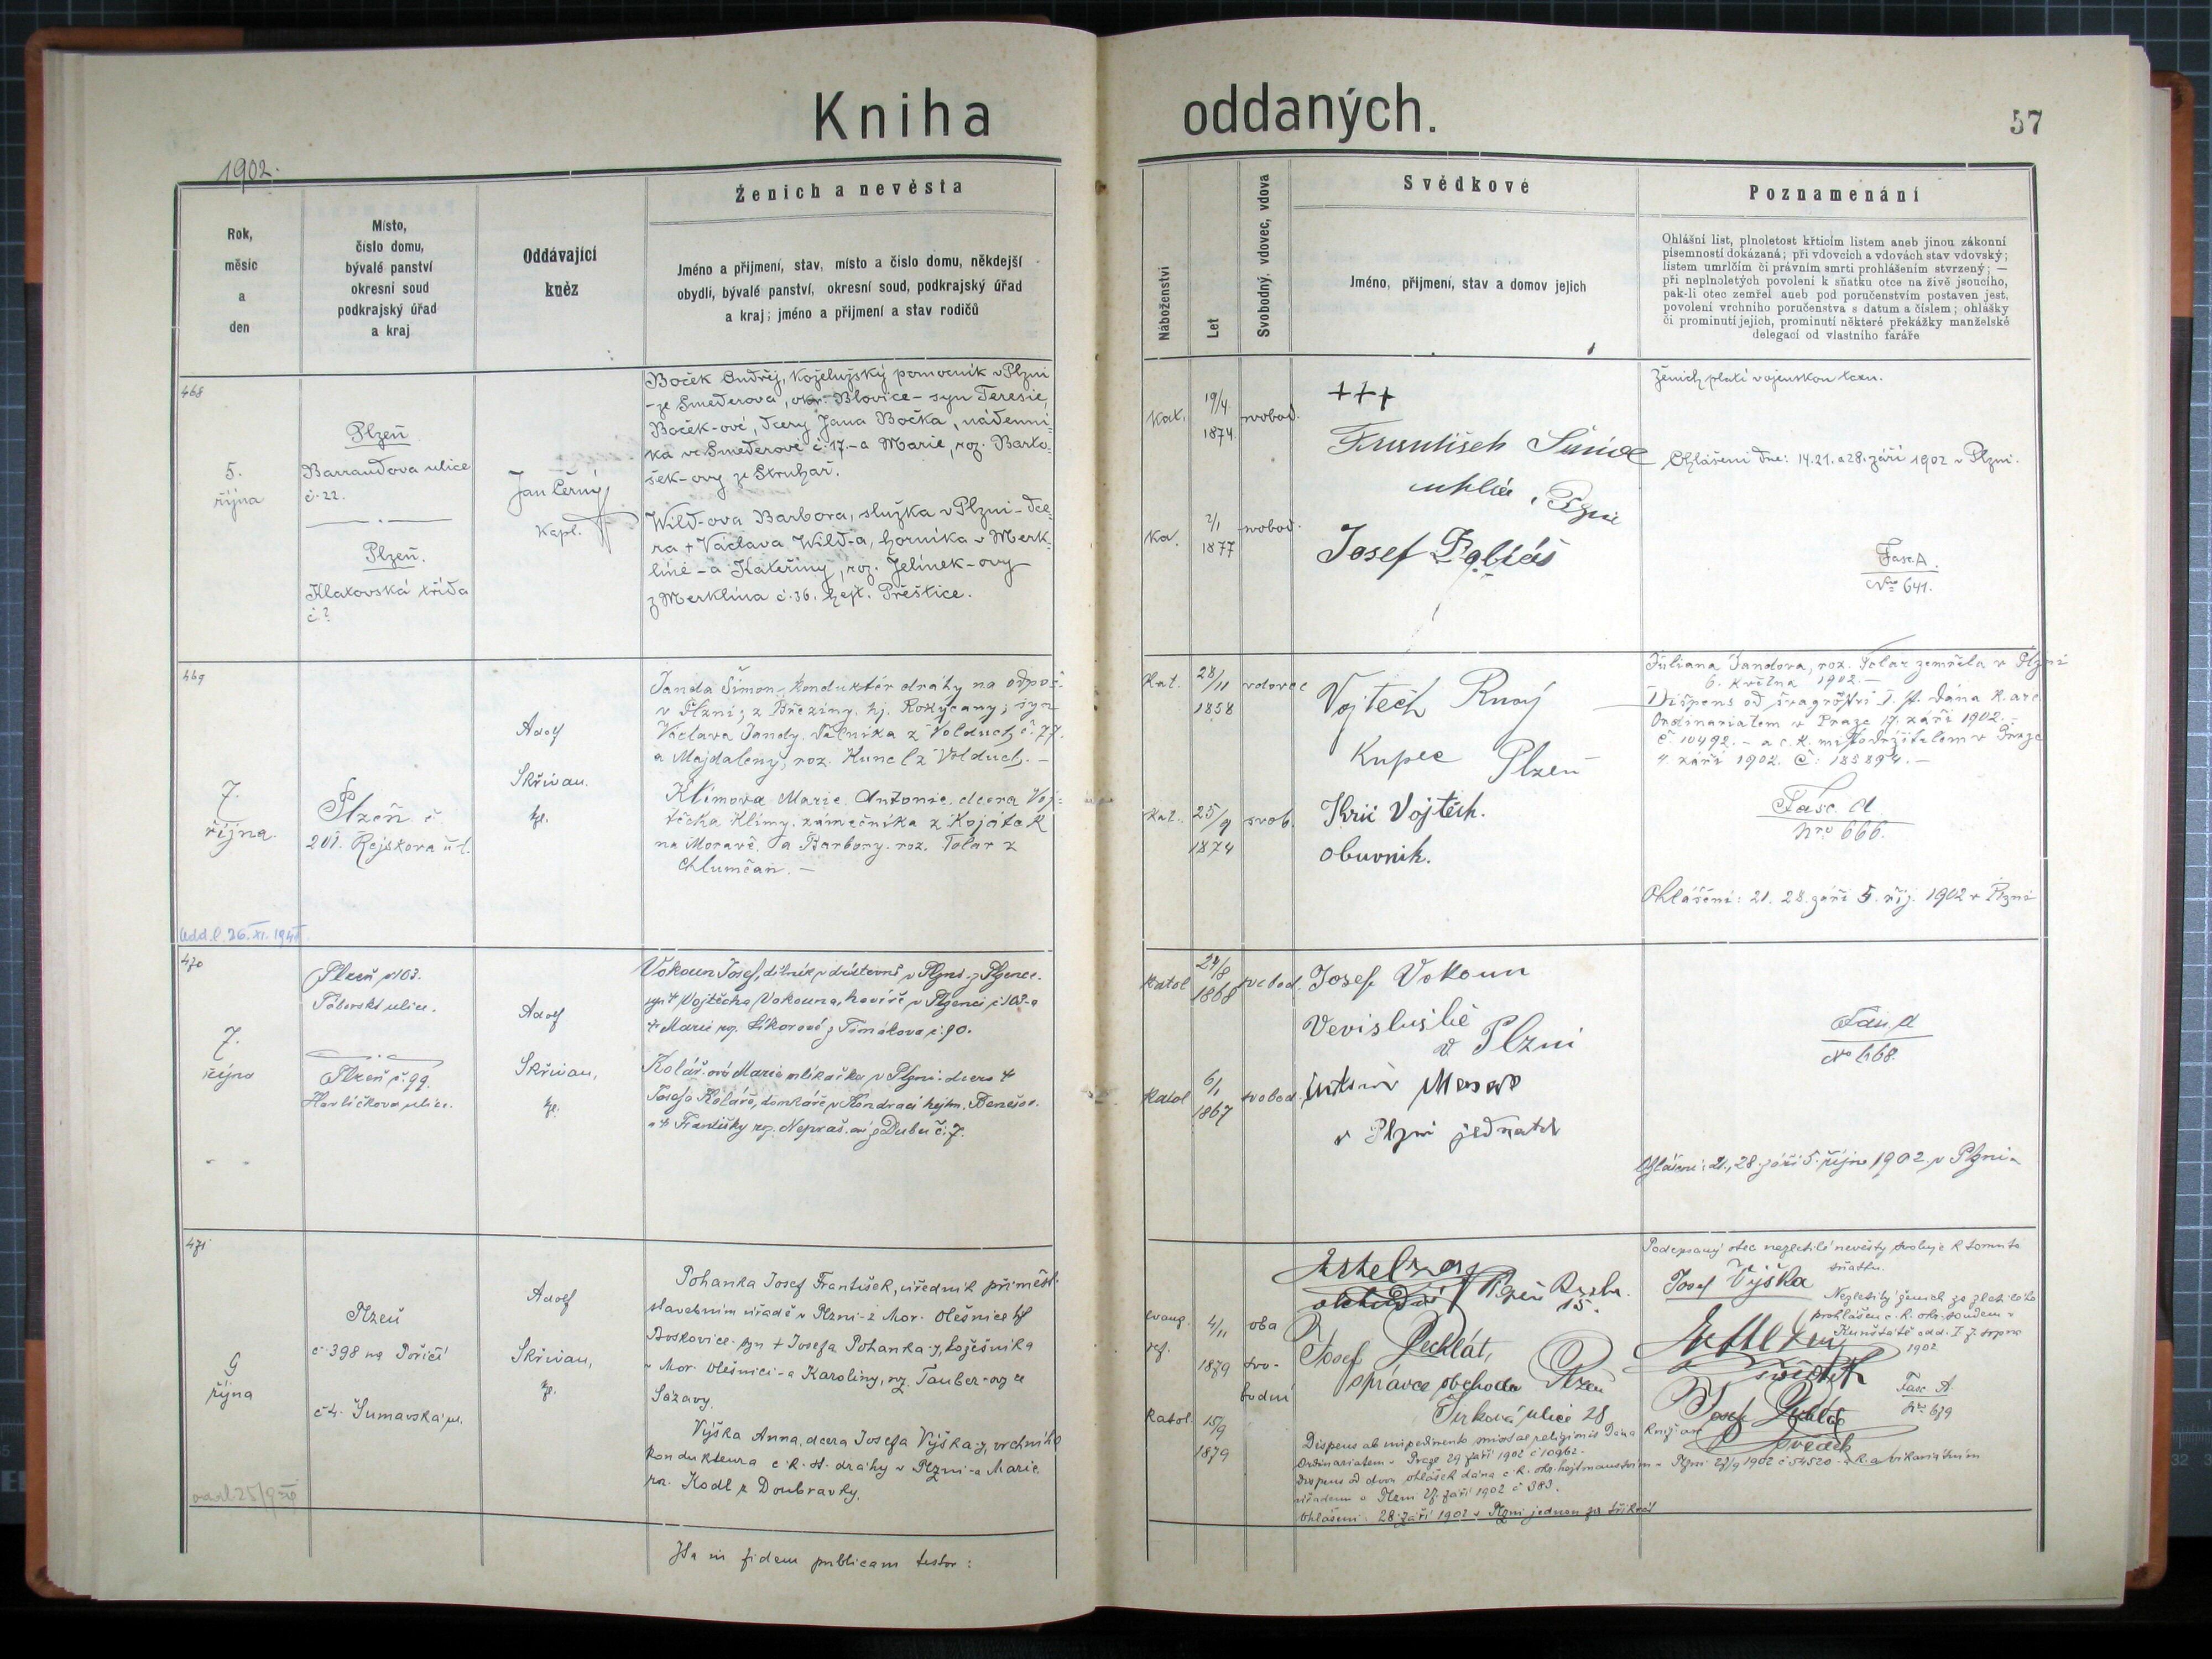 Kniha oddaných.
57
1902.
Rok,
měsíc
a
den
Místo,
číslo domu,
bývalé panství
okresní soud
podkrajský úřad
a kraj
Oddávající
kněz
Ženich a nevěsta
Jméno a přijmení, stav, místo a číslo domu, někdejší
obydlí, bývalé panství, okresní soud, podkrajský úřad
a kraj; jméno a přijmení a stav rodičů
Náboženství
Let
Svobodný, vdovec, vdova
Svědkové
Jméno, přijmení, stav a domov jejich
Poznamenání
Ohlášní list, plnoletost křticím listem aneb jinou zákonní
písemností dokázaná; při vdovcích a vdovách stav vdovský;
listem umrlčím či právním smrti prohlášením stvrzený; —
při neplnoletých povolení k sňatku otce na živě jsoucího,
pak-li otec zemřel aneb pod poručenstvím postaven jest,
povolení vrchního poručenstva s datum a číslem; ohlášky
či prominutí jejich, prominutí některé překážky manželské
delegací od vlastního faráře
468
5.
října
Plzeň
Barrandova ulice
č. 22.
Plzeň.
Klatovská třída
č ?
Jan Černý
kapl.
Boček Ondřej, koželužský pomocník v Plzni
- ze Směderova, okr. Blovice - syn Teresie,
Boček-ové, dcery Jana Bočka, nádenní-
ka ve Směderově č. 17 - a Marie, roz. Barto-
šek-ovy ze Struhař.
Wild-ova Barbora, služka v Plzni - dce-
ra + Václava Wild-a, horníka v Merk-
líně - a Kateřiny, roz. Jelínek-ovy
z Merklína č. 36. hejt. Přeštice.
Kat.
19/4
1874.
svobod.
Kat.
2/1
1877
svobod.
+++
František
uhlíř, Plzni
Josef
Ženich platí vojenskou taxu.
Ohlášení dne: 14. 21. a 28. září 1902 v Plzni.
Fasc. A.
Nro 641.
469
7.
října.
Plzeň č.
201. Rejskova ul.
Adolf
Skřivan.
kpl.
Janda Šimon, konduktér dráhy na odpoč.
v Plzni; z Březiny, hj. Rokycany; syn
Václava Jandy, dělníka z Volduch č. 77.
a Majdaleny, roz. Kuncl z Volduch. -
Klímova Marie Antonie, dcera Voj-
těcha Klímy, zámečníka z Kojátek
na Moravě, a Barbory, roz. Tolar z
Chlumčan. -
Kat.
28/11
1858
vdovec
Kat.
25/9
1874
svob.
Vojtěch
Kupec Plzeň
Krič Vojtěch.
obuvník.
Juliana Jandova, roz. Tolar zemřela v Plzni
6. května 1902. -
Dispens od švagrovství I. st. dána k. arc.
Ordinariatem v Praze 17. září 1902. -
č 10492. - a c. k. místodržitelem v Praze
4. září 1902. č: 185894. -
Fasc. A
Nro 666.
Ohlášení: 21. 28. září 5. říj. 1902 v Plzni
Odd. l. 26. XI. 1941.
470
7.
října
Plzeň č. 103.
Táborská ulice.
Plzeň č. 99.
Havlíčkova ulice.
Adolf
Skřivan,
kpl.
Vokoun Josef, dělník v Plzni - z Plzence.
syn + Vojtěcha Vokouna, havíře v Plzenci č. 103 - a
+ Marie roz. Sikorové z Timákova č. 90.
Kolář-ová Marie mlíkařka v Plzni - dcera +
Josefa Koláře, domkáře v Kondraci hejtm. Benešov.
a + Františky roz. Nepraš-ové z Dubu č. 7.
Katol
1868
svobod.
Katol
6/1
1867
svobod.
Josef Vokoun
v Plzni
v Plzni jednatel
Fasc. A
No 668.
Ohlášení: 21., 28. září 5. října 1902. v Plzni.
471
9
října
Plzeň
č. 398 na Poříčí
č. 4. Šumavská ul.
Adolf
Skřivan,
kpl.
Pohanka Josef František, úředník při měst.
stavebním úřadě v Plzni - z Mor. Olešnice hjt
Boskovice - syn + Josefa Pohanky, kožešníka
v Mor. Olešnici - a Karoliny, roz. Tauber-ovy ze
Sázavy.
Výška Anna, dcera Josefa Výšky, vrchního
kondukteura c. k. st. dráhy v Plzni - a Marie
roz. Kodl z Doubravky.
evang.
ref.
4/11
1879
oba
svo-
bodní
Katol.
15/9
1879
Josef Pechlát,
správce obchodu Plzeň
Jirková ulice 28
Podepsaný otec nezletilé nevěsty svoluje k tomuto
sňatku.
Josef Výška
Nezletilý ženich za zletilého
prohlášen c. k. okr. soudem v
Kunštátě odd. I 7. srpna
1902
svědek
Josef Pechlát
svědek
Fasc A.
Nro 679
Dispens ab impedimento mixtae religionis dána kníž. arc
Ordinariatem v Praze 29 září 1902 č 10962 -
Dispens od dvou ohlášek dána c. k. okr. hejtmanstvím v Plzni 27/9 1902 č 54520 - a k. a. vikariátním
úřadem v Plzni 27. září 1902 č 383.
Ohlášení 28. září 1902 v Plzni jednou za třikrát
Ita in fidem publicam testor: